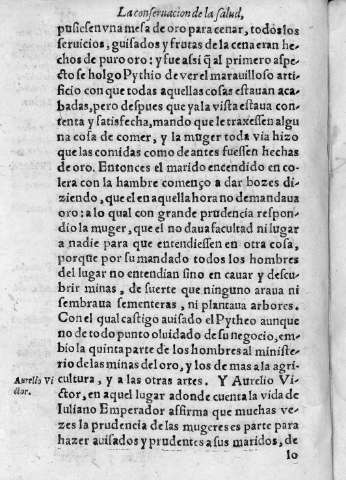 La conseruacion de la salud,
pusiesen vna mesa de oro para cenar, todos los
seruicios, guisados y frutas de la cena eran he-
chos de puro oro: y fue asi q̃ al primero aspe-
cto se holgo Pythio de ver el marauilloso arti-
ficio con que todas aquellas cosas estauan aca-
badas, pero despues que ya la vista estaua con-
tenta y satisfecha, mando que le traxessen algu
na cosa de comer, y la muger toda via hizo
que las comidas como de antes fuessen hechas
de oro. Entonces el marido encendido en co-
lera con la hambre començo a dar bozes di-
ziendo, que el en aquella hora no demandaua
oro: a lo qual con grande prudencia respon-
dio la muger, que el no daua facultad ni lugar
a nadie para que entendiessen en otra cosa,
porque por su mandado todos los hombres
del lugar no entendian sino en cauar y descu-
brir minas, de suerte que ninguno araua ni
sembraua sementeras, ni plantaua arbores.
Con el qual castigo auisado el Pytheo aunque
no de todo punto oluidado de su negocio, em-
bio la quinta parte de los hombres al ministe-
rio de las minas del oro, y los de mas a la agri-
Aurelio Vi
ctor.
cultura, y a las otras artes. Y Aurelio Vi-
ctor, en aquel lugar adonde cuenta la vida de
Iuliano Emperador affirma que muchas ve-
zes la prudencia de las mugeres es parte para
hazer auisados y prudentes a sus maridos, de
lo